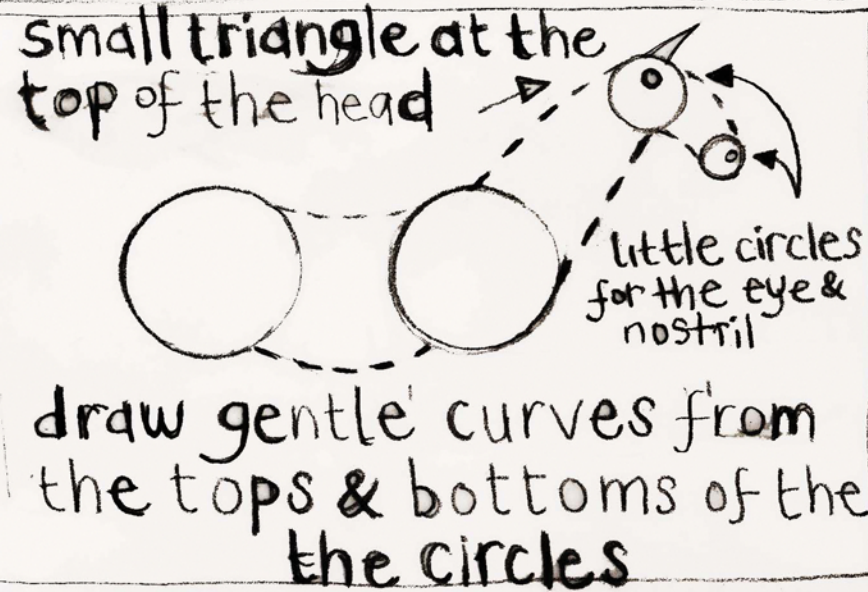 small triangle at the
top of the head
little circles
for the eye &
nostril
draw gentle curves from
the tops & bottoms of the
the circles